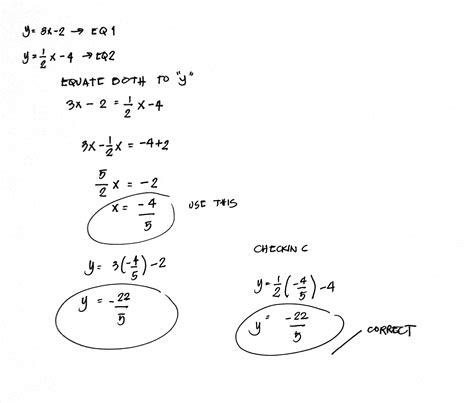 y = 3x - 2 → EQ 1
y = 1/2 x - 4 → EQ2
EQUATE BOTH TO "y"
3x - 2 = 1/2 x - 4
3x - 1/2 x = -4+2
5/2 x = -2
x = -4/5 USE THIS
y = 3(-4/5) - 2
y = -22/5
CHECKING
y = 1/2 (-4/5) - 4
y = -22/5
CORRECT